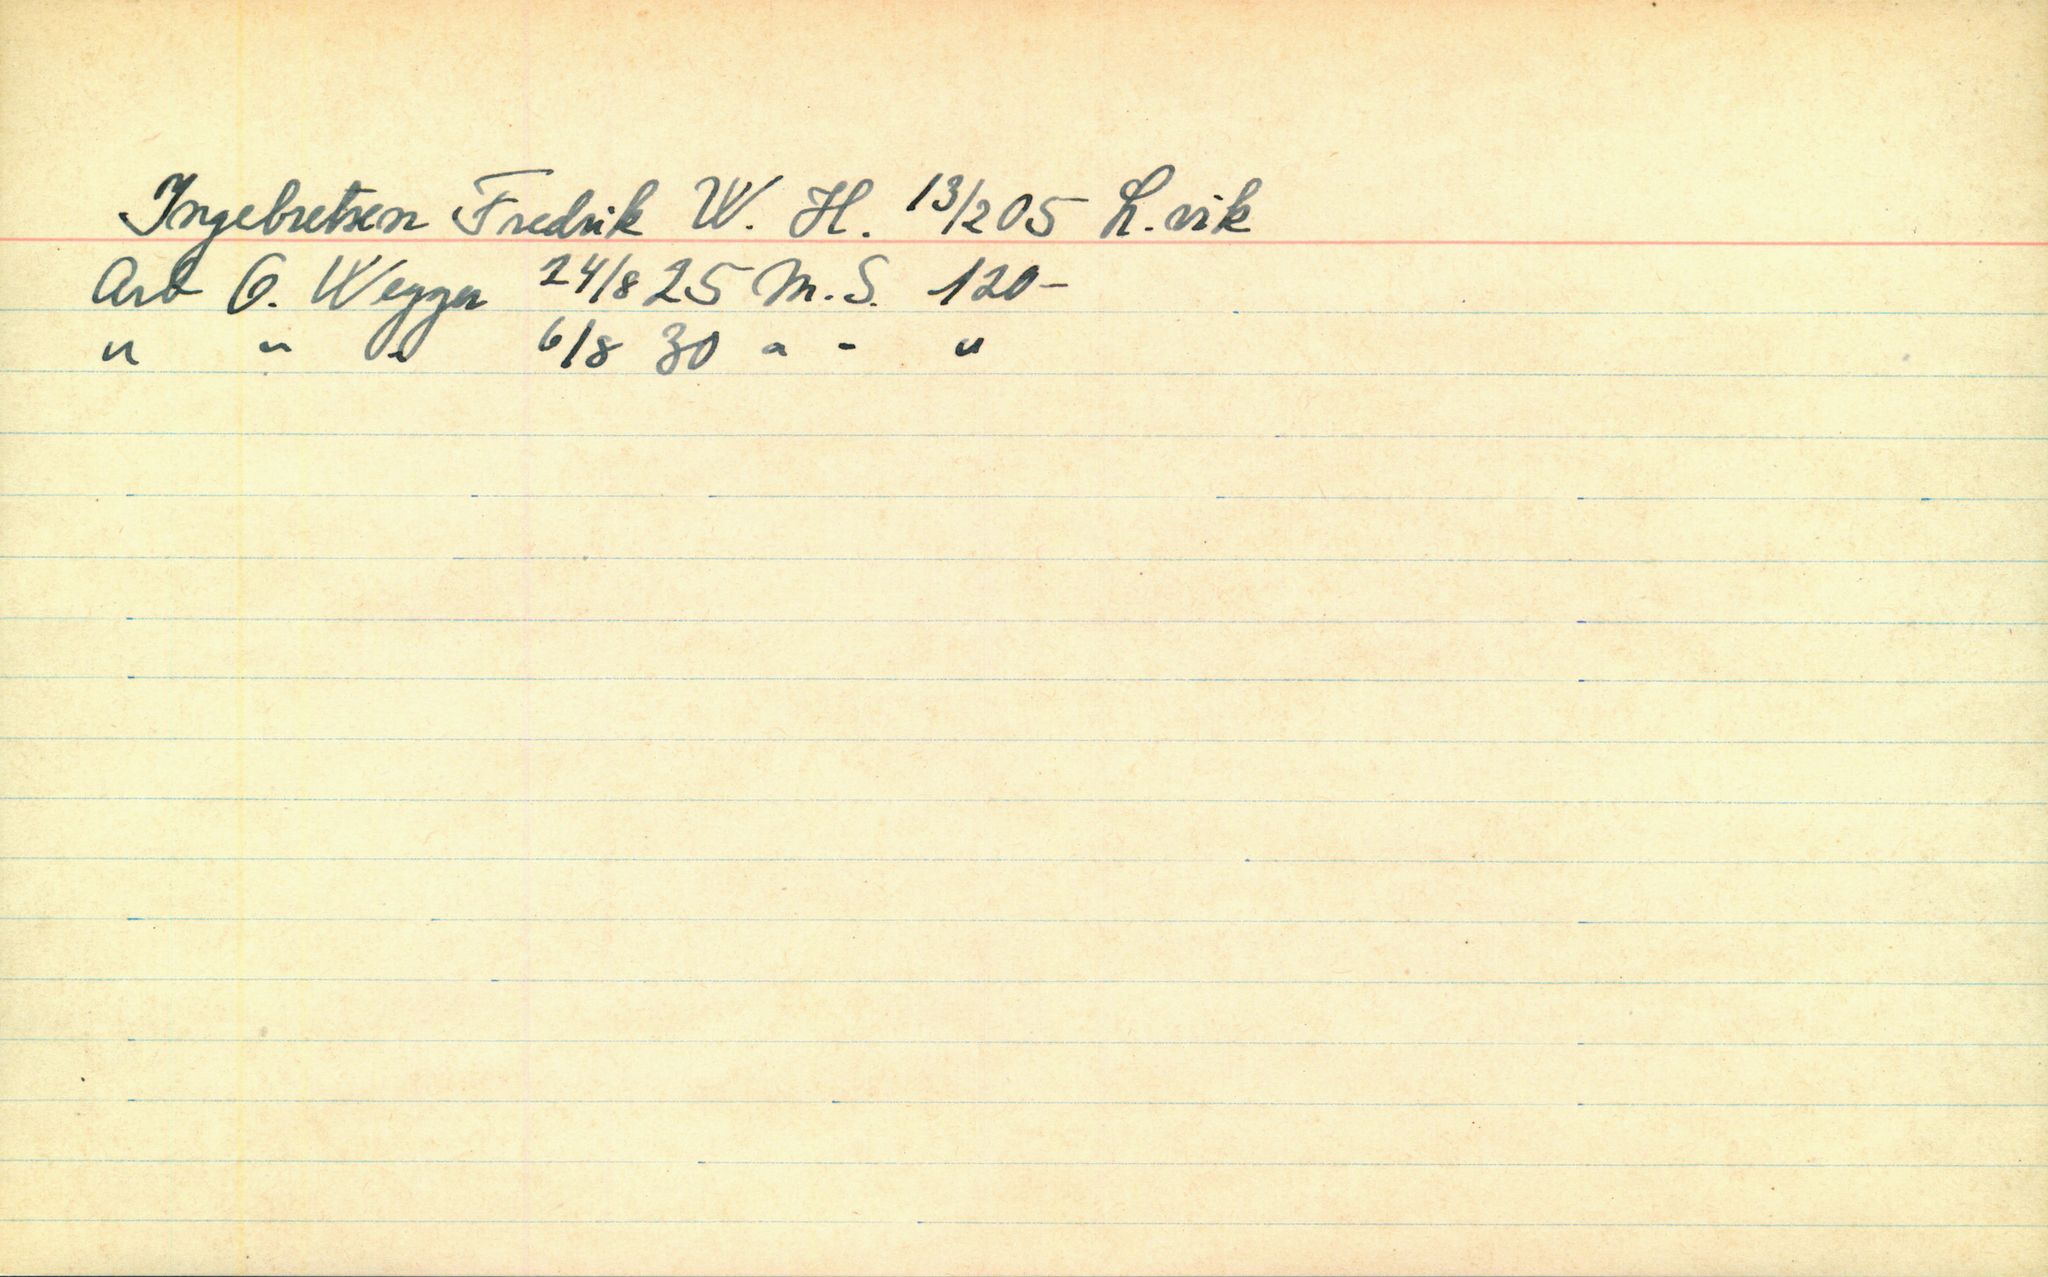 Ingebretsen Fredrik W. H. 13/2 05 L.vik
Arb O. Wegger 24/8 25 M.S. 120-
" " " 6/8 30 " " "